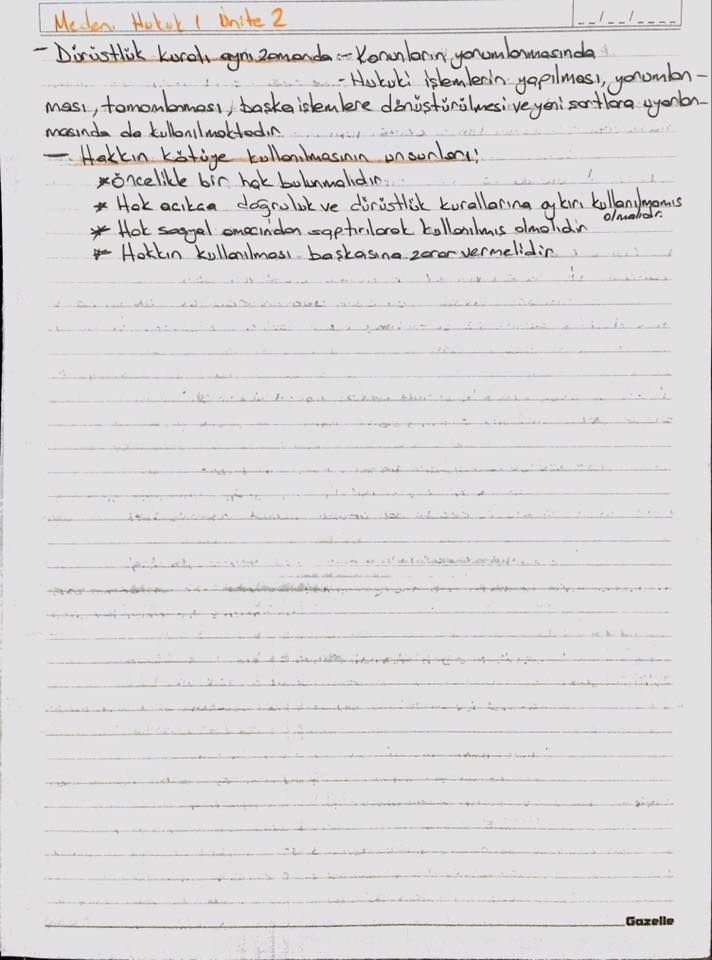 Medeni Hukuk 1 Ünite 2
__/__/____
- Dürüstlük kuralı aynı zamanda :- Kanunların yorumlanmasında
- Hukuki işlemlerin yapılması, yorumlan-
ması, tamamlanması, başka işlemlere dönüştürülmesi ve yeni şartlara uyarlan-
masında da kullanılmaktadır.
- Hakkın kötüye kullanılmasının unsurları;
* Öncelikle bir hak bulunmalıdır.
* Hak açıkca doğruluk ve dürüstlük kurallarına aykırı kullanılmamış
olmalıdır.
* Hak sosyal amacından saptırılarak kullanılmış olmalıdır
* Hakkın kullanılması başkasına zarar vermelidir.
Gazelle